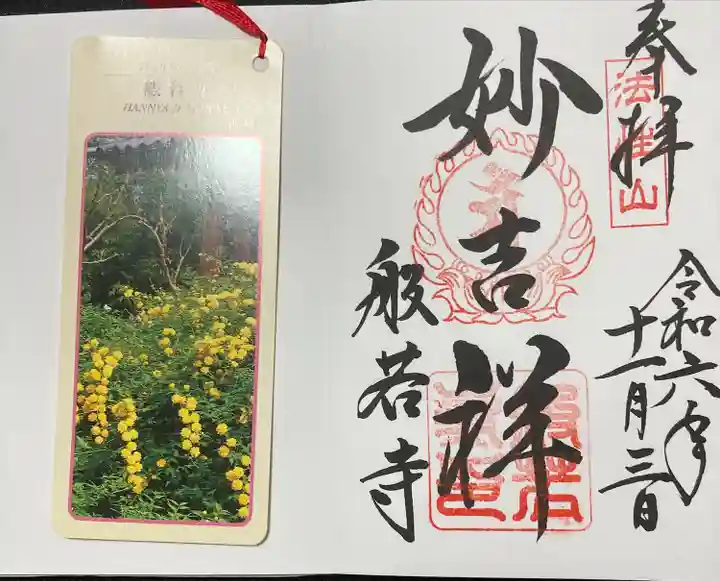 奉拝
法性山
令和六年
十一月三日
妙吉祥
般若寺
般若寺